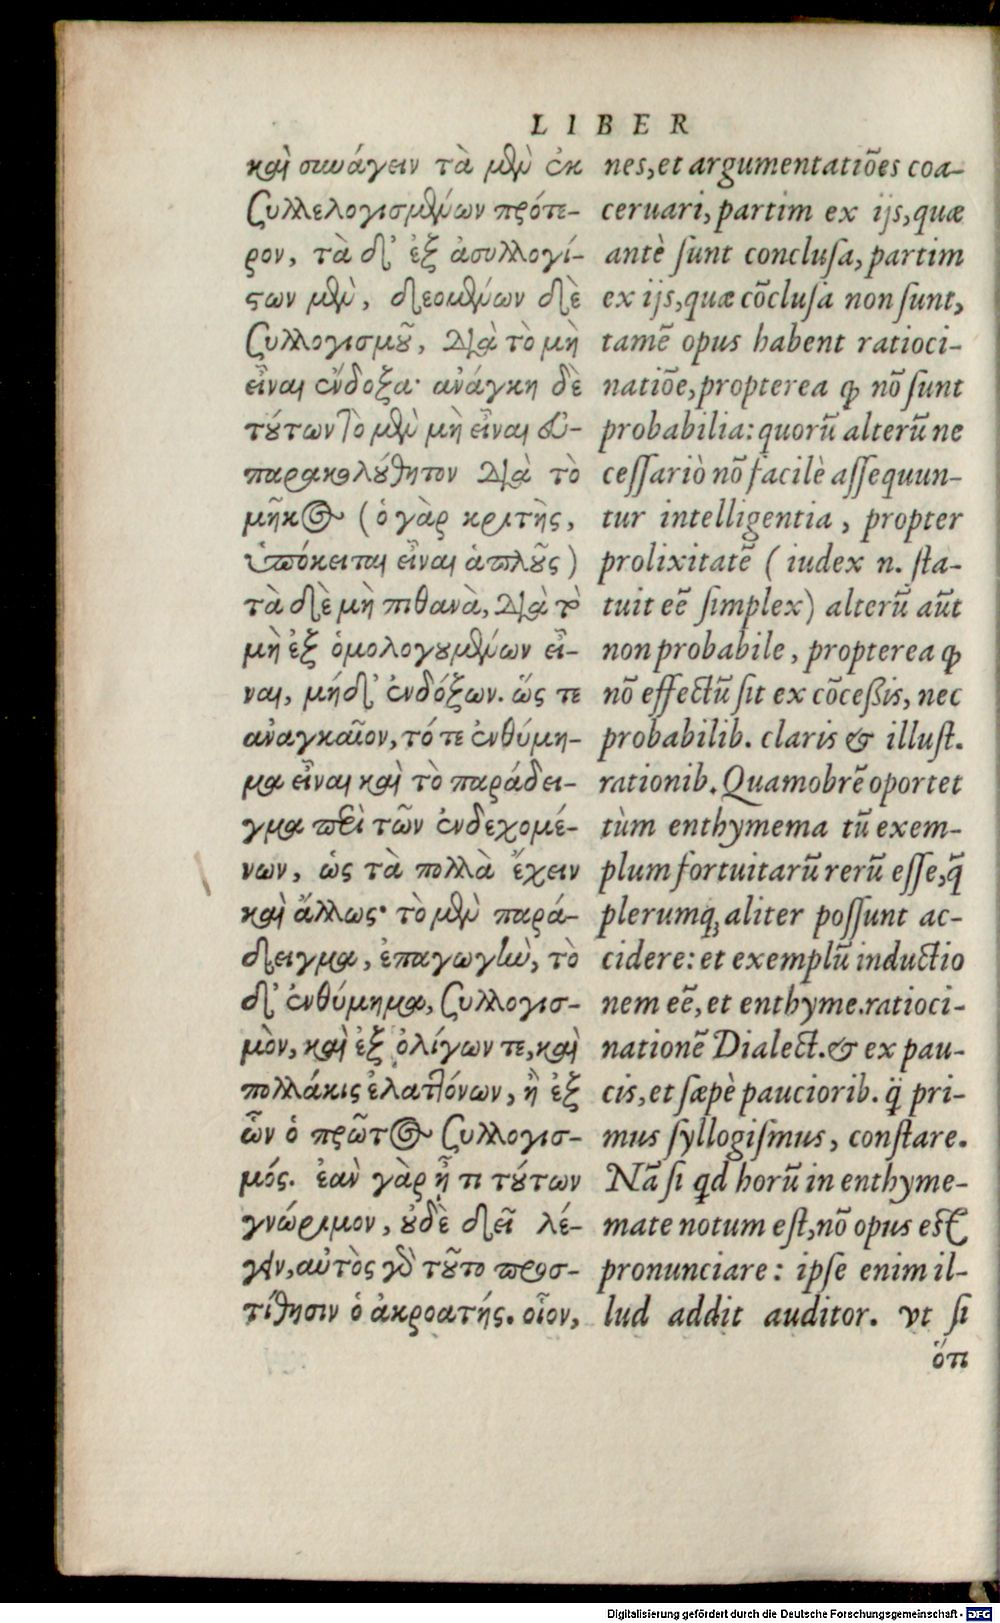 LIBER
καὶ συνάγειν τὰ μὲν ἐκ
συλλελογισμένων πρότε-
ρον, τὰ δ' ἐξ ἀσυλλογί-
στων μὲν, δεομένων δὲ
συλλογισμοῦ, διὰ τὸ μὴ
εἶναι ἔνδοξα· ἀνάγκη δὲ
τούτων τὸ μὲν μὴ εἶναι εὐ-
παρακολούθητον διὰ τὸ
μῆκος (ὁ γὰρ κριτὴς,
ὑπόκειται εἶναι ἁπλοῦς)
τὰ δὲ μὴ πιθανὰ, διὰ τὸ
μὴ ἐξ ὁμολογουμένων εἶ-
ναι, μήδ' ἐνδόξων. ὥς τε
ἀναγκαῖον, τό τε ἐνθύμη-
μα εἶναι καὶ τὸ παράδει-
γμα περὶ τῶν ἐνδεχομέ-
νων, ὡς τὰ πολλὰ ἔχειν
καὶ ἄλλως· τὸ μὲν παρά-
δειγμα, ἐπαγωγὴν, τὸ
δ' ἐνθύμημα, συλλογισ-
μὸν, καὶ ἐξ ὀλίγων τε, καὶ
πολλάκις ἐλαττόνων, ἢ ἐξ
ὧν ὁ πρῶτος συλλογισ-
μός. ἐὰν γὰρ ᾖ τι τούτων
γνώριμον, οὐδὲ δεῖ λέ-
γειν, αὐτὸς γὰρ τοῦτο προσ-
τίθησιν ὁ ἀκροατής. οἷον,
nes, et argumentatiões coa-
ceruari, partim ex ijs, quæ
antè sunt conclusa, partim
ex ijs, quæ cõclusa non sunt,
tamẽ opus habent ratioci-
natiõe, propterea ꝙ nõ sunt
probabilia: quorũ alterũ ne
cessariò nõ facilè assequun-
tur intelligentia, propter
prolixitatẽ (iudex n. sta-
tuit eẽ simplex) alterũ aũt
non probabile, propterea ꝙ
nõ effectũ sit ex cõceßis, nec
probabilib. claris & illust.
rationib. Quamobrẽ oportet
tùm enthymema tũ exem-
plum fortuitarũ rerũ esse, q̃
plerumq; aliter possunt ac-
cidere: et exemplũ inductio
nem eẽ, et enthyme. ratioci-
nationẽ Dialect. & ex pau-
cis, et sæpè pauciorib. q̈ pri-
mus syllogismus, constare.
Nã si qd horũ in enthyme-
mate notum est, nõ opus est
pronunciare: ipse enim il-
lud addit auditor. vt si
ὅτι
Digitalisierung gefördert durch die Deutsche Forschungsgemeinschaft - DFG